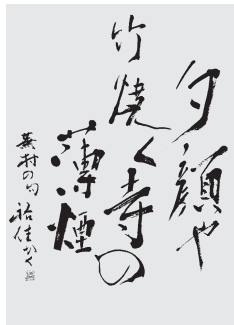 夕顔や
竹焼く寺の
薄煙
蕪村の句 祐佳かく